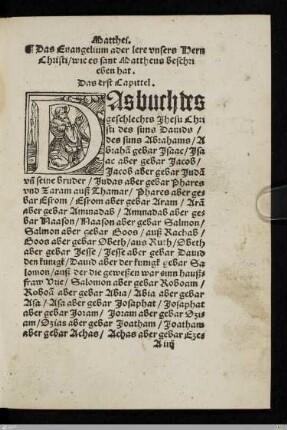 Matthei.
¶Das Euangelium ader lere vnsers Hern
Christi/wie es sant Mattheus beschri
eben hat.
Das erst Capittel.
DAs buch des
geschlechts Jhesu Chri
sti des suns Dauids/
des suns Abrahams/A
brahā gebar Isaac/Isa
ac aber gebar Jacob/
Jacob aber gebar Judā
vn̄ seine bruder/Judas aber gebar Phares
vnd Zaram auß Thamar/Phares aber ge-
bar Esrom/Esrom aber gebar Aram/Arā
aber gebar Aminadab/Aminadab aber ge-
bar Naason/Naason aber gebar Salmon/
Salmon aber gebar Boos/auß Rachab/
Boos aber gebar Obeth/aus Ruth/Obeth
aber gebar Jesse/Jesse aber gebar Dauid
den kunigk/Dauid aber der kunigk gebar Sa
lomon/auß der die geweßen war sinn hauß-
fraw Urie/Salomon aber gebar Roboam/
Roboā aber gebar Abia/Abia aber gebar
Asa/Asa aber gebar Josaphat/Josaphat
aber gebar Joram/Joram aber gebar Ozi
am/Ozias aber gebar Joatham/Joatham
aber gebar Achas/Achas aber gebar Ezes
A iiij